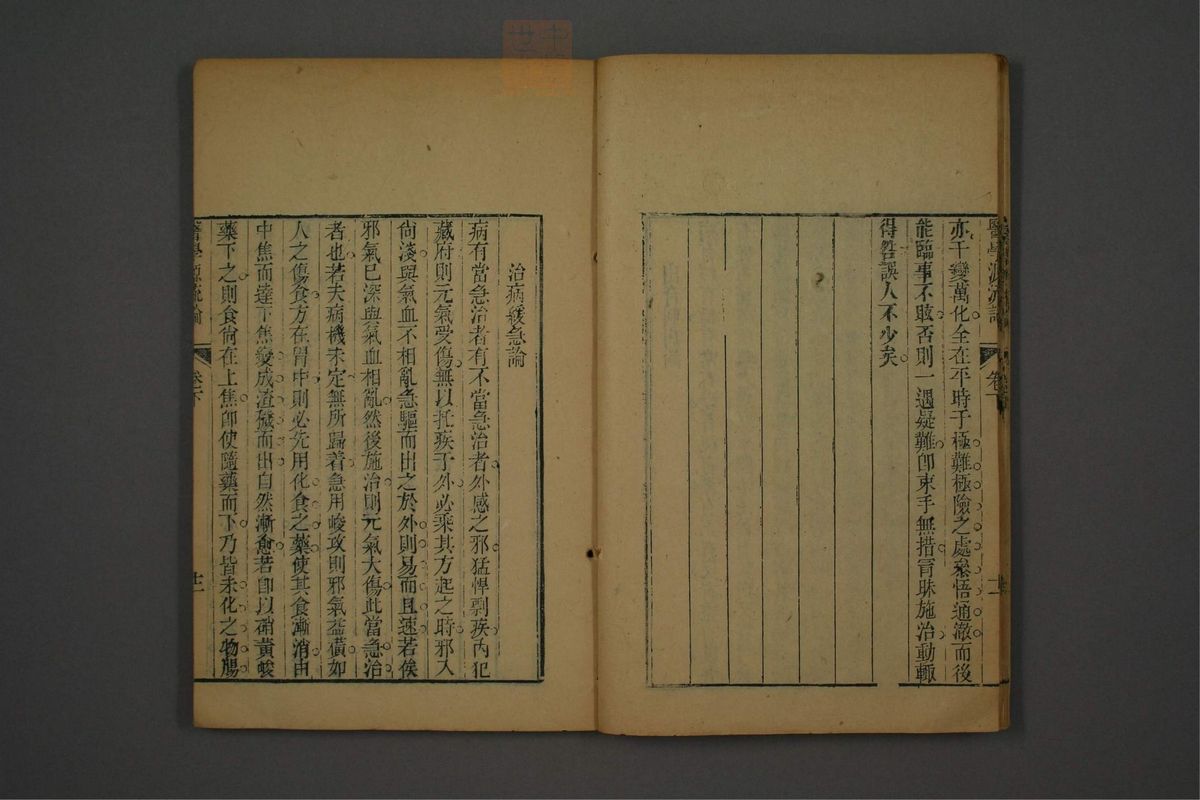 醫學源流論 卷下
亦千變萬化全在平時于極難極險之處叅悟通澈而後
能臨事不眩否則一遇疑難卽束手無措冐昧施治動輒
得咎誤人不少矣
治病緩急論
病有當急治者有不當急治者外感之邪猛悍剽疾內犯
藏府則元氣受傷無以托疾于外必乘其方起之時邪入
尙淺與氣血不相亂急驅而出之於外則易而且速若俟
邪氣已深與氣血相亂然後施治則元氣大傷此當急治
者也若夫病機未定無所歸着急用峻攻則邪氣益橫如
人之傷食方在胃中則必先用化食之藥使其食漸消由
中焦而達下焦變成渣穢而出自然漸愈若卽以硝黃峻
藥下之則食尙在上焦卽使隨藥而下乃皆未化之物腸
醫學源流論 卷下 十二